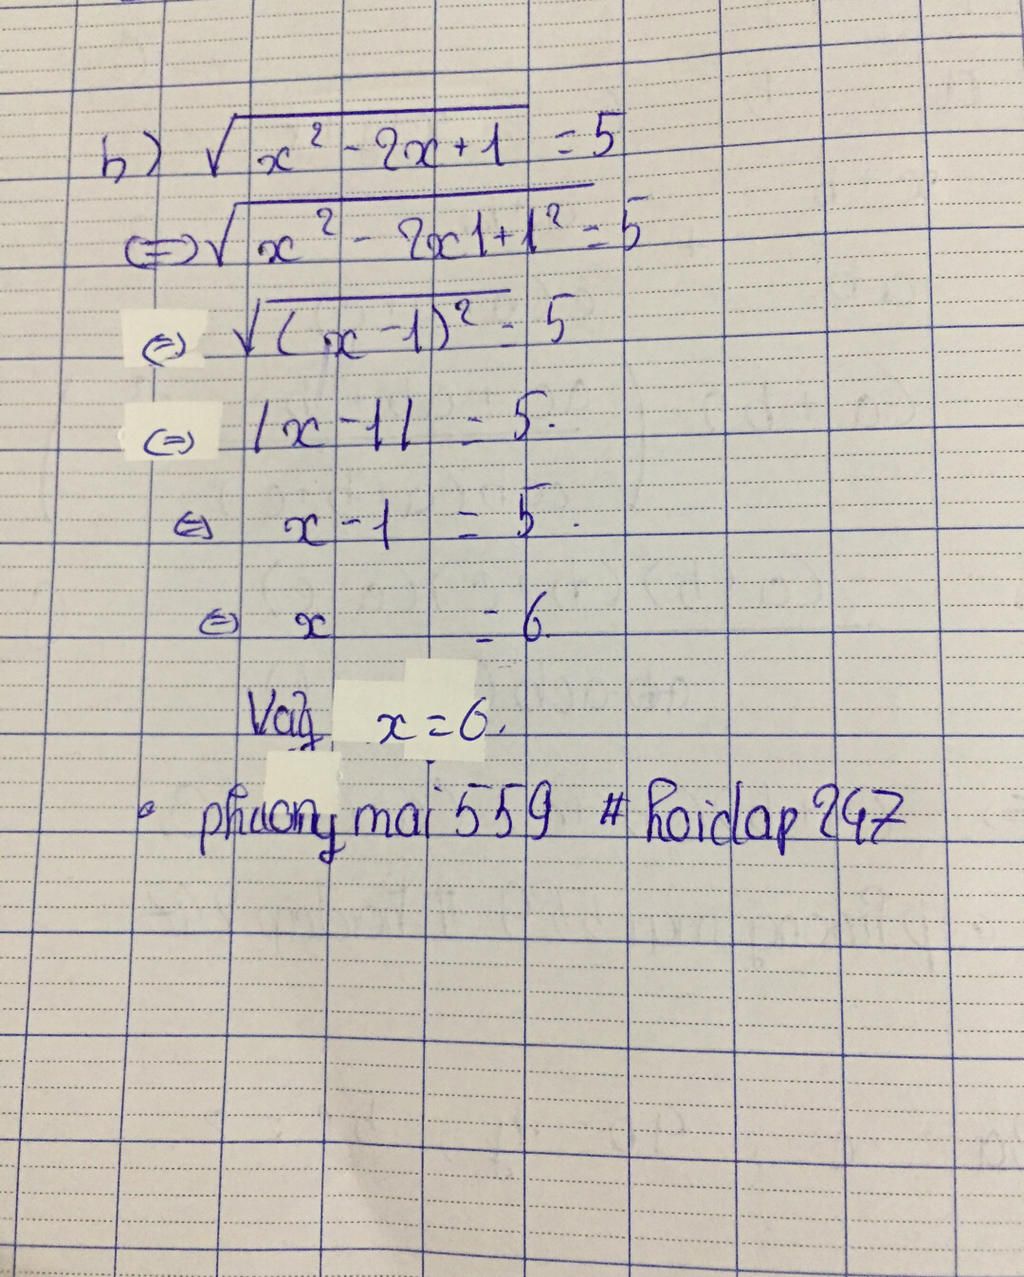 b) √(x² - 2x + 1) = 5
(=) √(x² - 2x1 + 1²) = 5
(=) √((x - 1)²) = 5
(=) |x - 1| = 5.
(=) x - 1 = 5.
(=) x = 6.
Vậy x = 6.
• phuongmai559 # hoidap247